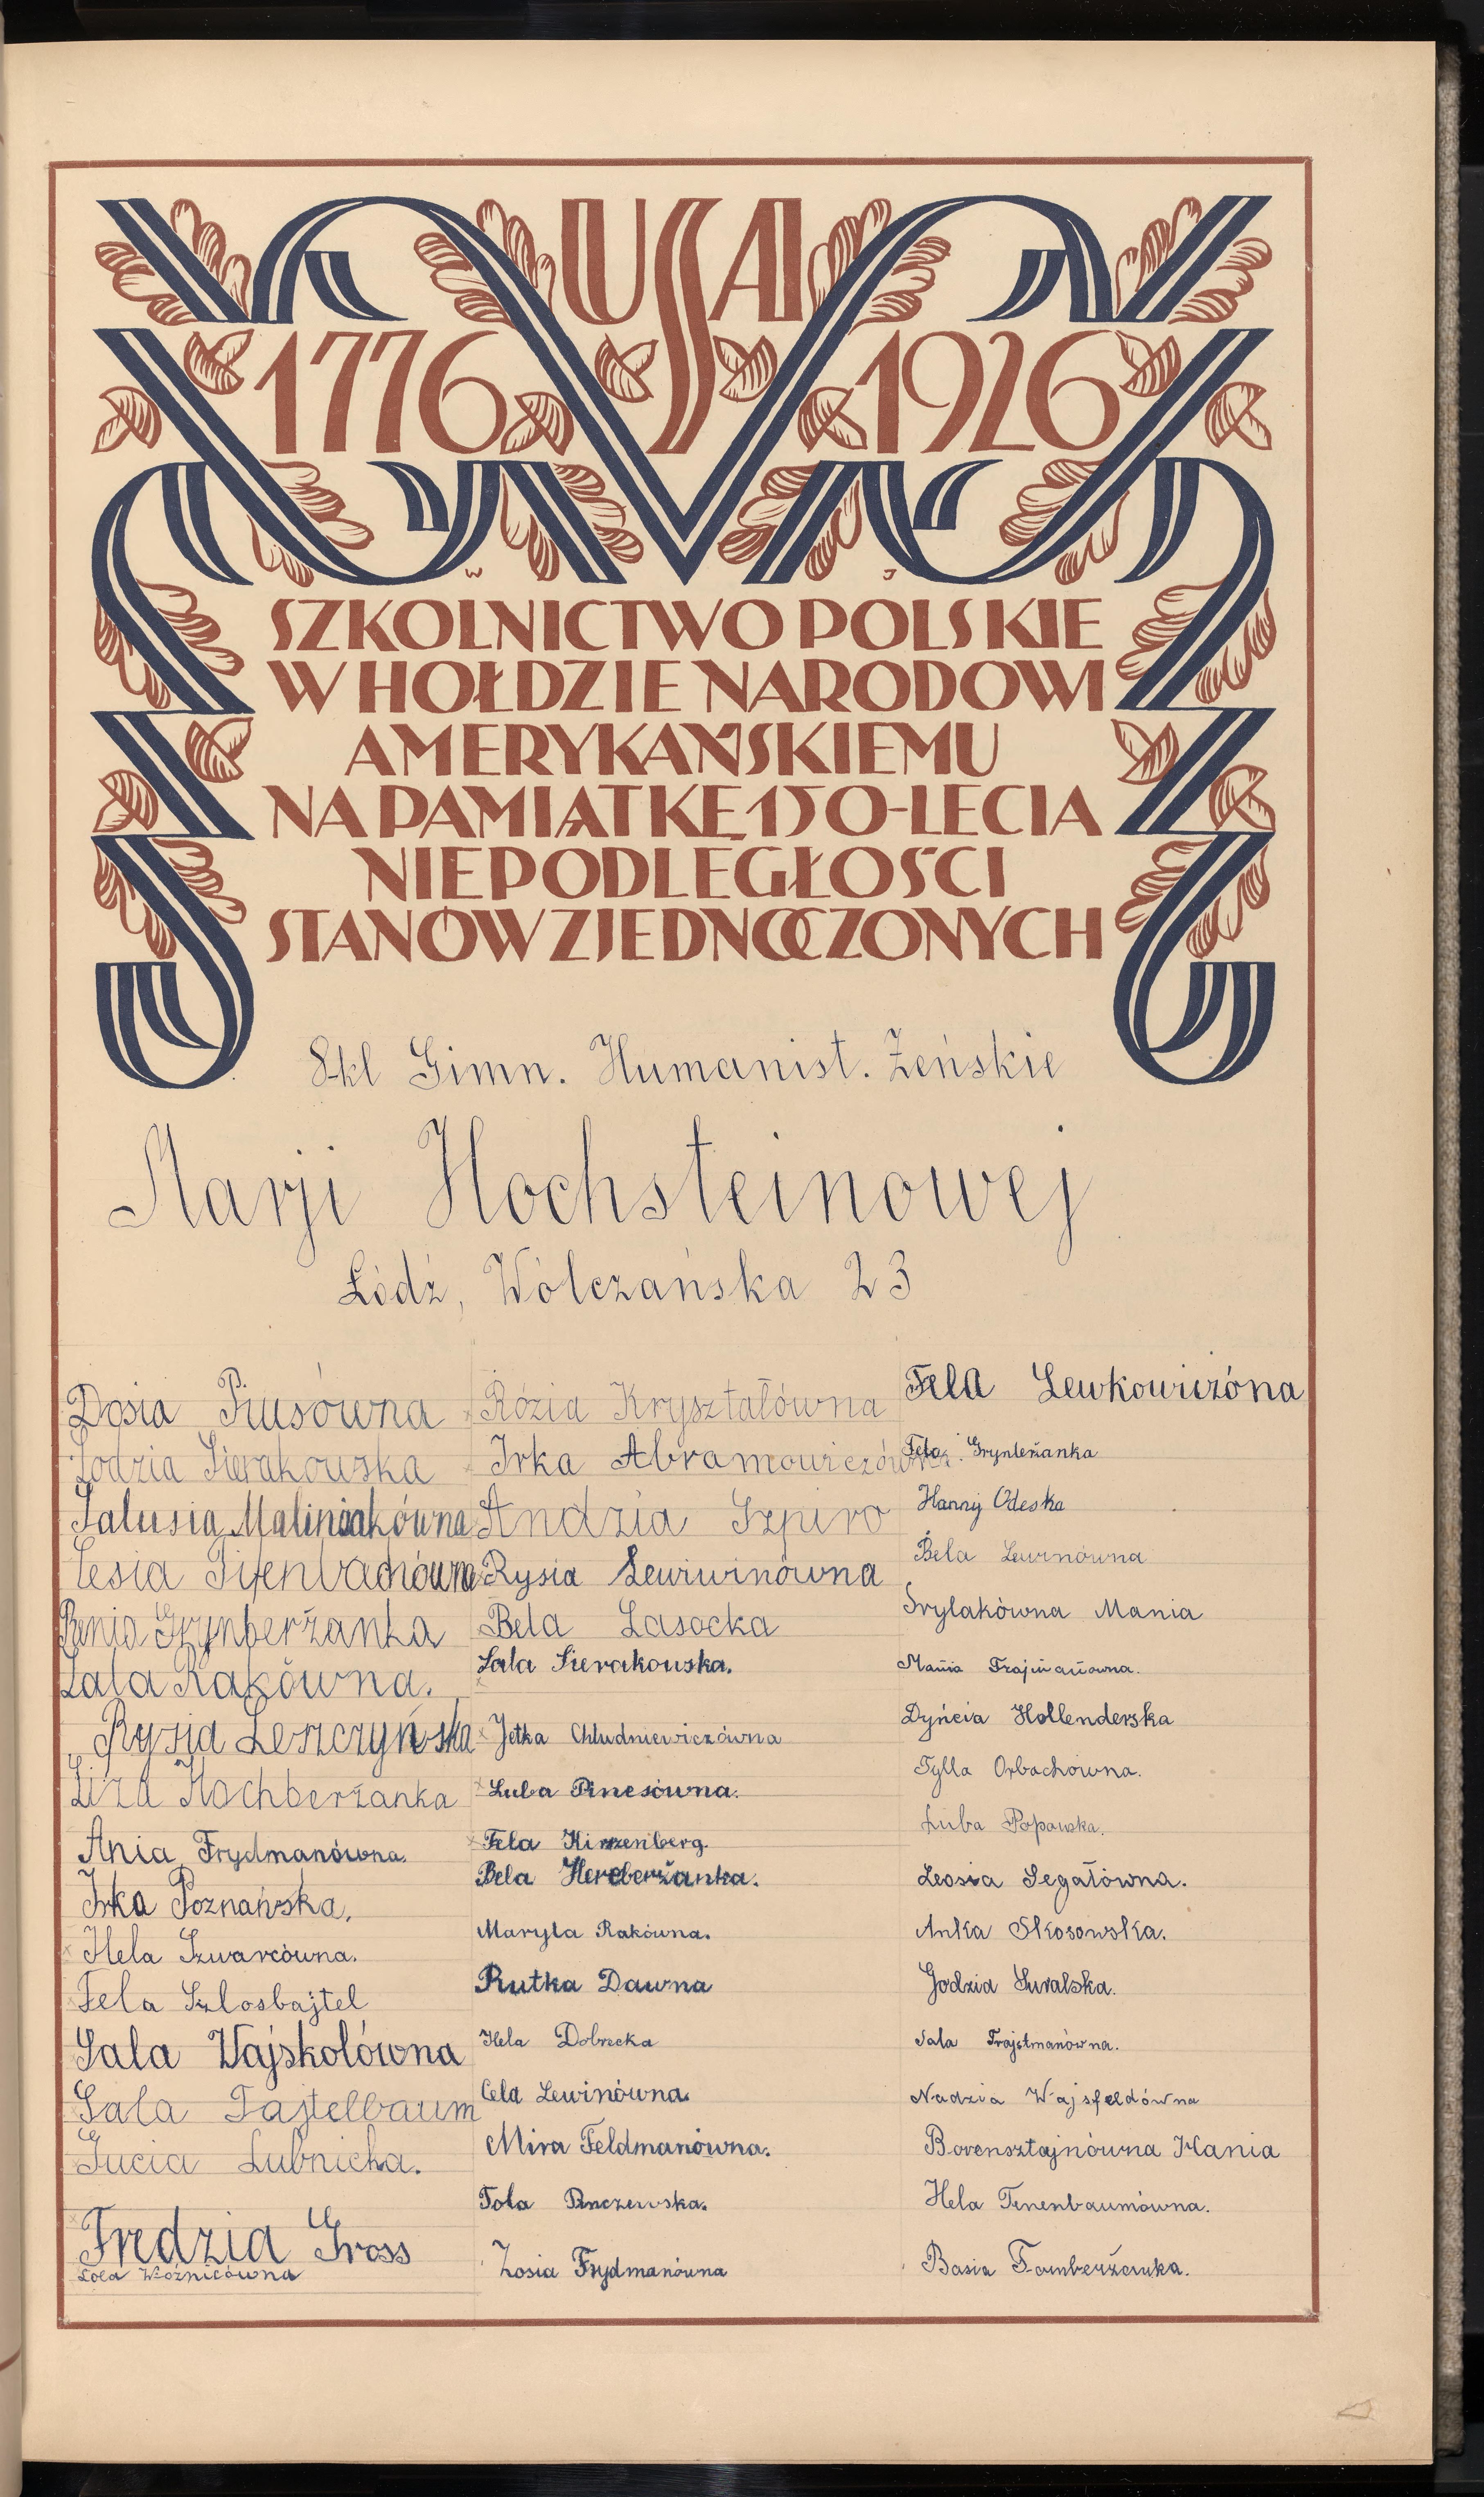 USA
1776 1926
W J
SZKOLNICTWO POLSKIE
W HOŁDZIE NARODOWI
AMERYKAŃSKIEMU
NA PAMIĄTKĘ 150-LECIA
NIEPODLEGŁOŚCI
STANÓW ZJEDNOCZONYCH
8-kl Gimn. Humanist. Żeńskie
Marji Hochsteinowej
Łódź, Wólczańska 23
Dosia Piusówna
Łodzia Sierakowska
Salusia Maliniakówna
Cesia Tifenbachówna
Renia Grynberżanka
Lala Rakówna.
Rysia Leszczyńska
Liza Hochberżanka
Ania Frydmanówna.
Irka Poznańska.
Hela Szwarcówna.
Fela Szlosbajtel
Sala Wajskolówna
Sala Tajtelbaum
Gucia Lubnicka.
Fredzia Gross
Lola Woźnicówna
Rózia Kryształówna
Irka Abramowiczówna
Andzia Szpiro
Rysia Lewiwinówna
Bela Lasocka
Lala Sierakowska.
Jetka Chłudniewiczówna
Luba Pinesówna.
Fela Hirszenberg.
Bela Hercberżanka.
Maryla Rakówna.
Rutka Dawna
Hela Dobrecka
Cela Lewinówna.
Mira Feldmanówna.
Tola Pinczewska.
Zosia Frydmanówna
Fela Lewkowiczóna
Fela Grynberżanka
Hanny Odeska
Bela Lewinówna
Srylakówna Mania
Mania Frajmanówna.
Dyńcia Hollenderska
Tylla Orbachówna.
Luba Popowska.
Leosia Segałówna.
Anka Skosowska.
Godzia Suralska.
Sala Trajstmanówna.
Nadzia Wajsfeldówna
Borensztajnówna Mania
Hela Tenenbaumówna.
Basia